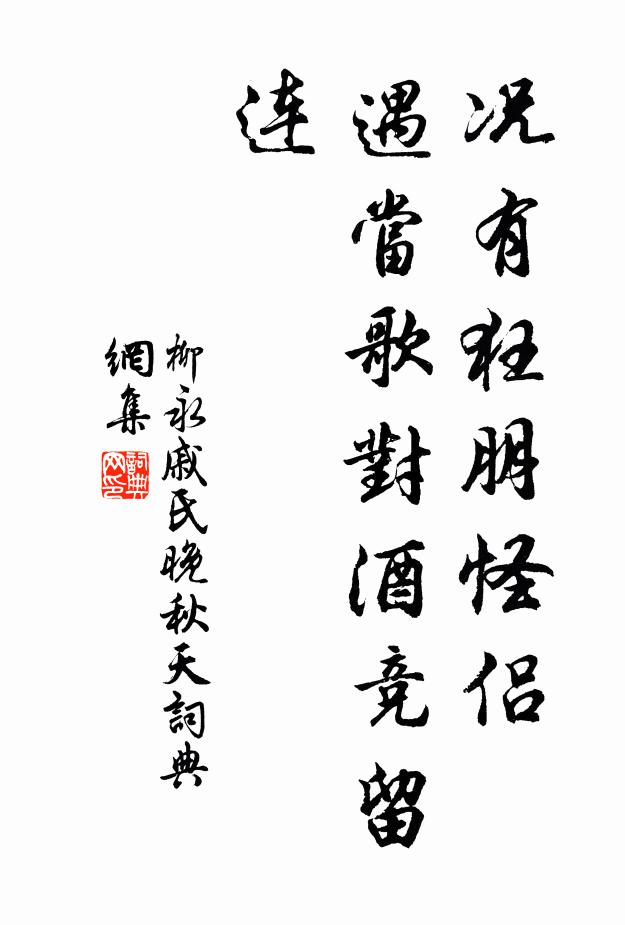 况有狂朋怪侣
遇當歌對酒竞留
连
柳永戚氏晚秋天詞典
網集
詞典
网印